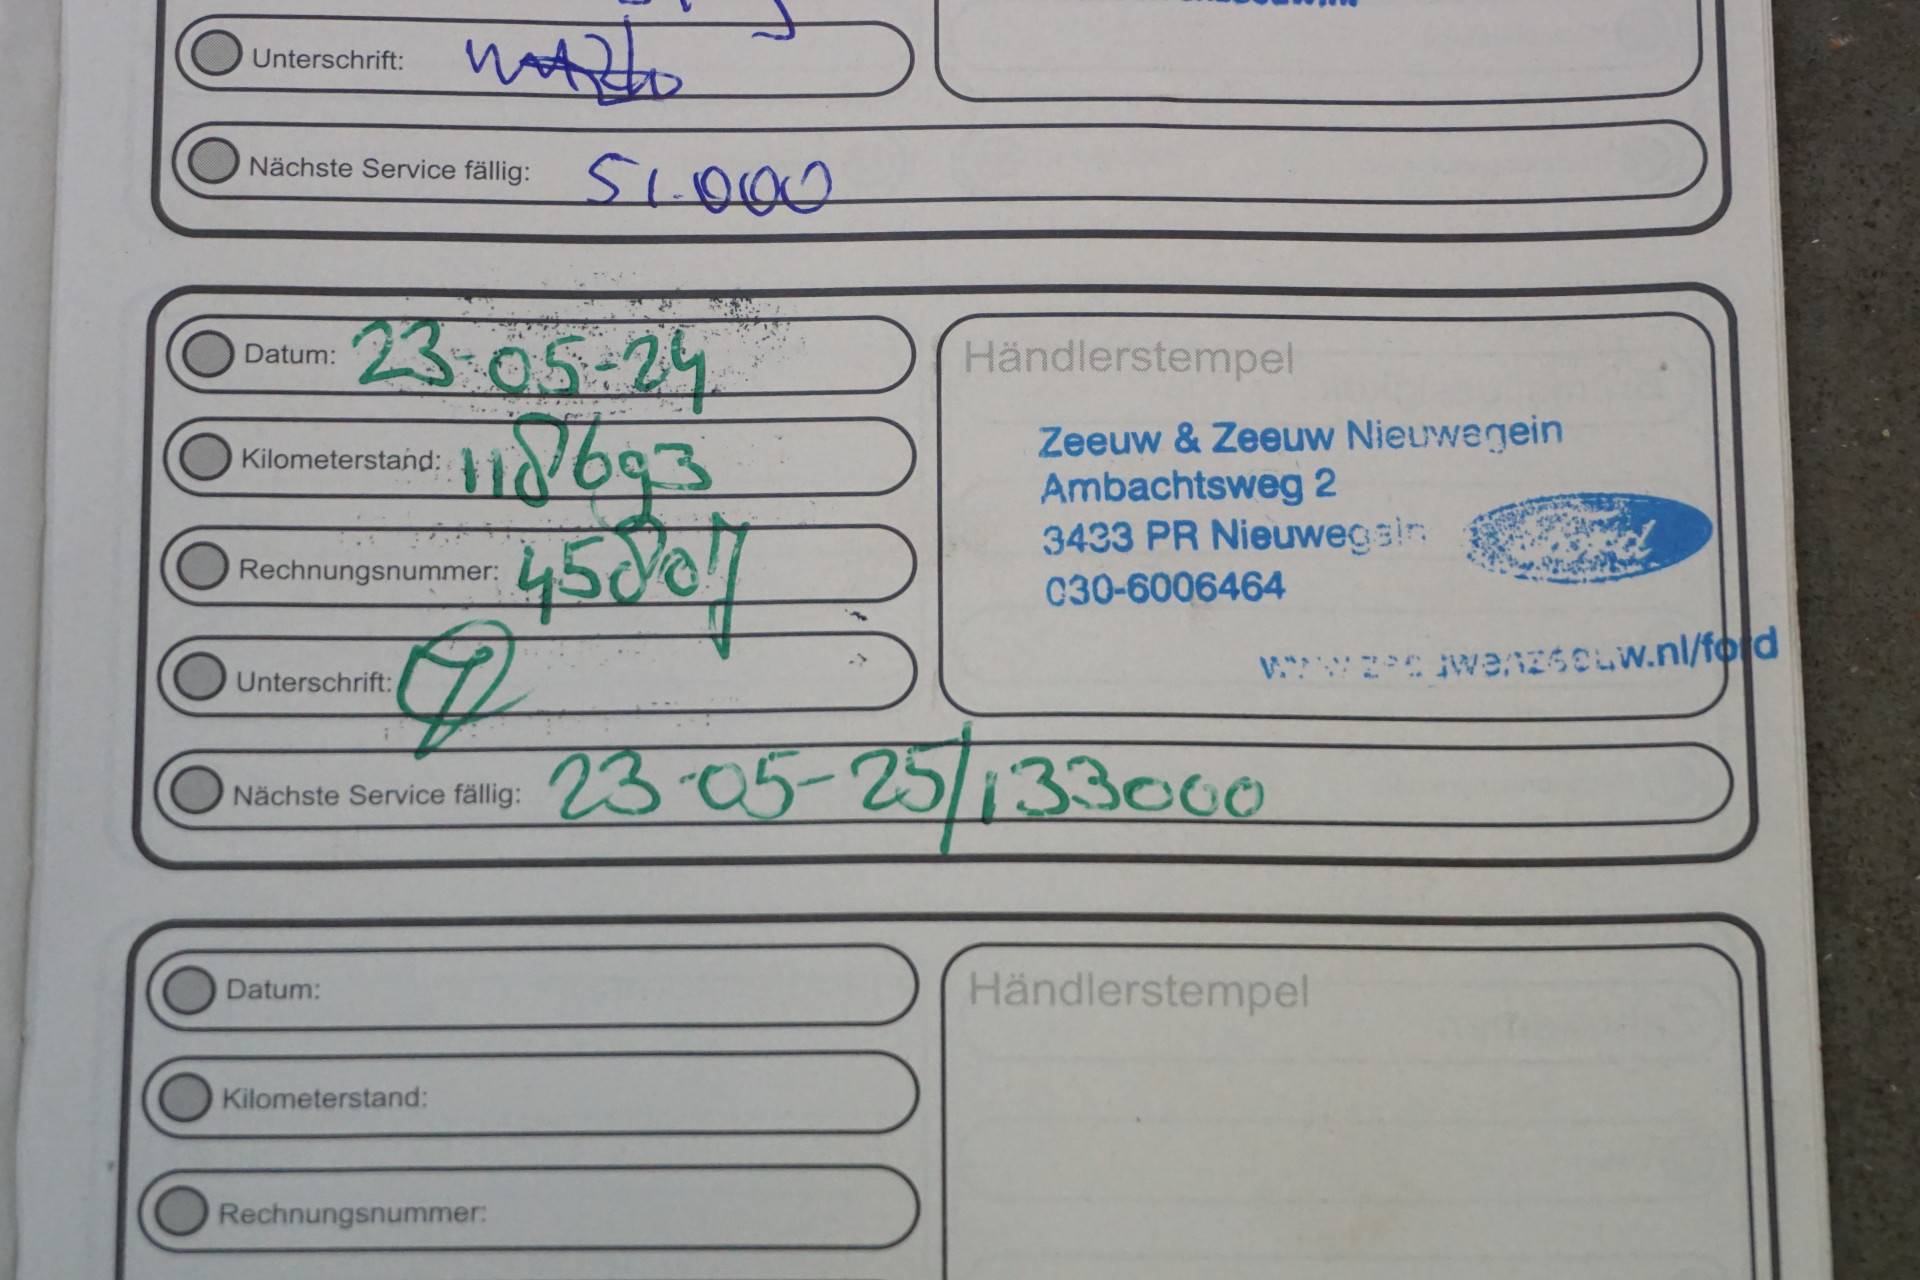 Unterschrift:
Nächste Service fällig: 51.000
Datum: 23-05-24
Kilometerstand: 118693
Rechnungsnummer:
Unterschrift:
Nächste Service fällig: 23-05-25/133000
Händlerstempel
Zeeuw & Zeeuw Nieuwegein
Ambachtsweg 2
3433 PR Nieuwegein
030-6006464
www.zeeuwenzeeuw.nl/ford
Datum:
Kilometerstand:
Rechnungsnummer:
Händlerstempel